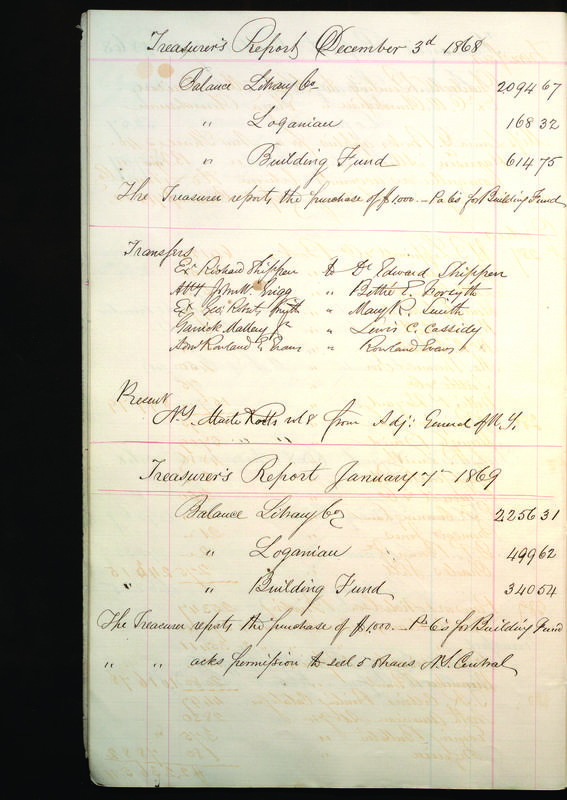 Treasurer's Report December 3d 1868
Balance Library Co 2094 67
" Loganian 168 32
" Building Fund 614 75
The Treasurer reports the purchase of $1,000. — Pa 6's for Building Fund
Transfers
Exr Richard Shippen to Dr Edward Shippen
John M. Grigg " Bettie E. Forsyth
Exr Geo: Roberts Smith " Mary R. Smith
Garrick Mallery Jr " Lewis C. Cassidy
Admr Rowland E. Evans " Rowland Evans
Present
N.Y. Muster Rolls vol 8 from Adj: General of N.Y.
Treasurer's Report January 7th 1869
Balance Library Co 2256 31
" Loganian 499 62
" Building Fund 340 54
The Treasurer reports the purchase of $1,000. — Pa 6's for Building Fund
" " asks permission to sell 5 shares Central